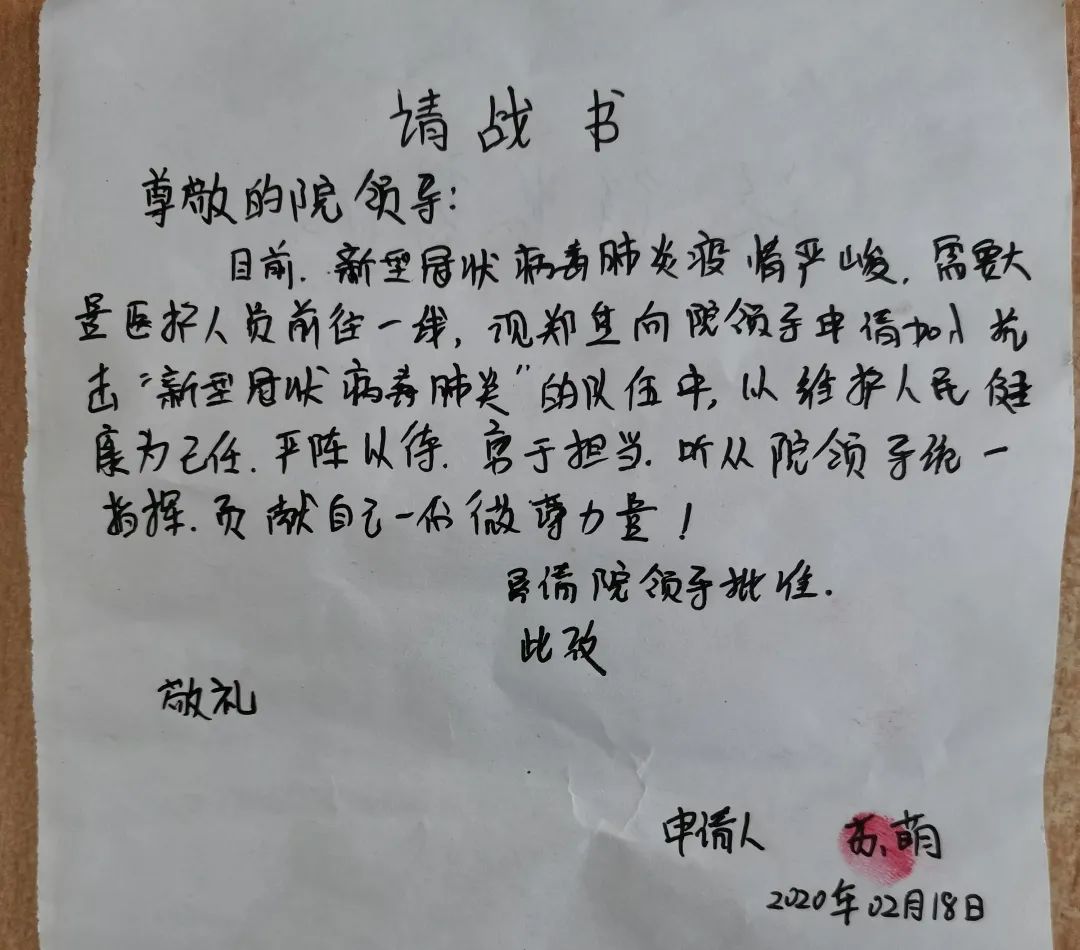 请战书
尊敬的院领导:
目前.新型冠状病毒肺炎疫情严峻,需要大
量医护人员前往一线,现郑重向院领导申请加入抗
击“新型冠状病毒肺炎”的队伍中,以维护人民健
康为己任.严阵以待.勇于担当.听从院领导统一
指挥.贡献自己一份微薄力量!
呈请院领导批准.
此致
敬礼
申请人 苏萌
2020年02月18日